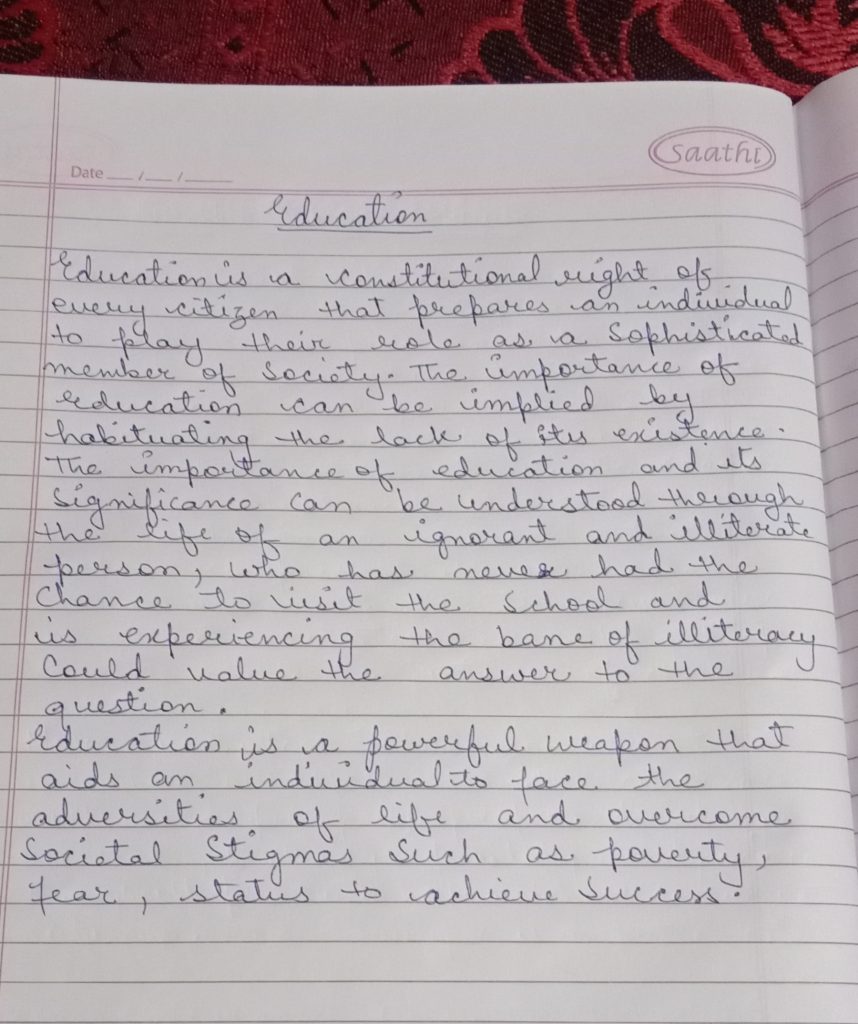 saathi
Date __/__/____
Education
Education is a constitutional right of
every citizen that prepares an individual
to play their role as a Sophisticated
member of Society. The importance of
education can be implied by
habituating the lack of its existence.
The importance of education and its
Significance can be understood through
the life of an ignorant and illiterate
person, who has never had the
Chance to visit the School and
is experiencing the bane of illiteracy
Could value the answer to the
question.
Education is a powerful weapon that
aids an individual to face the
adversities of life and overcome
Societal Stigmas Such as poverty,
fear, status to achieve Success.